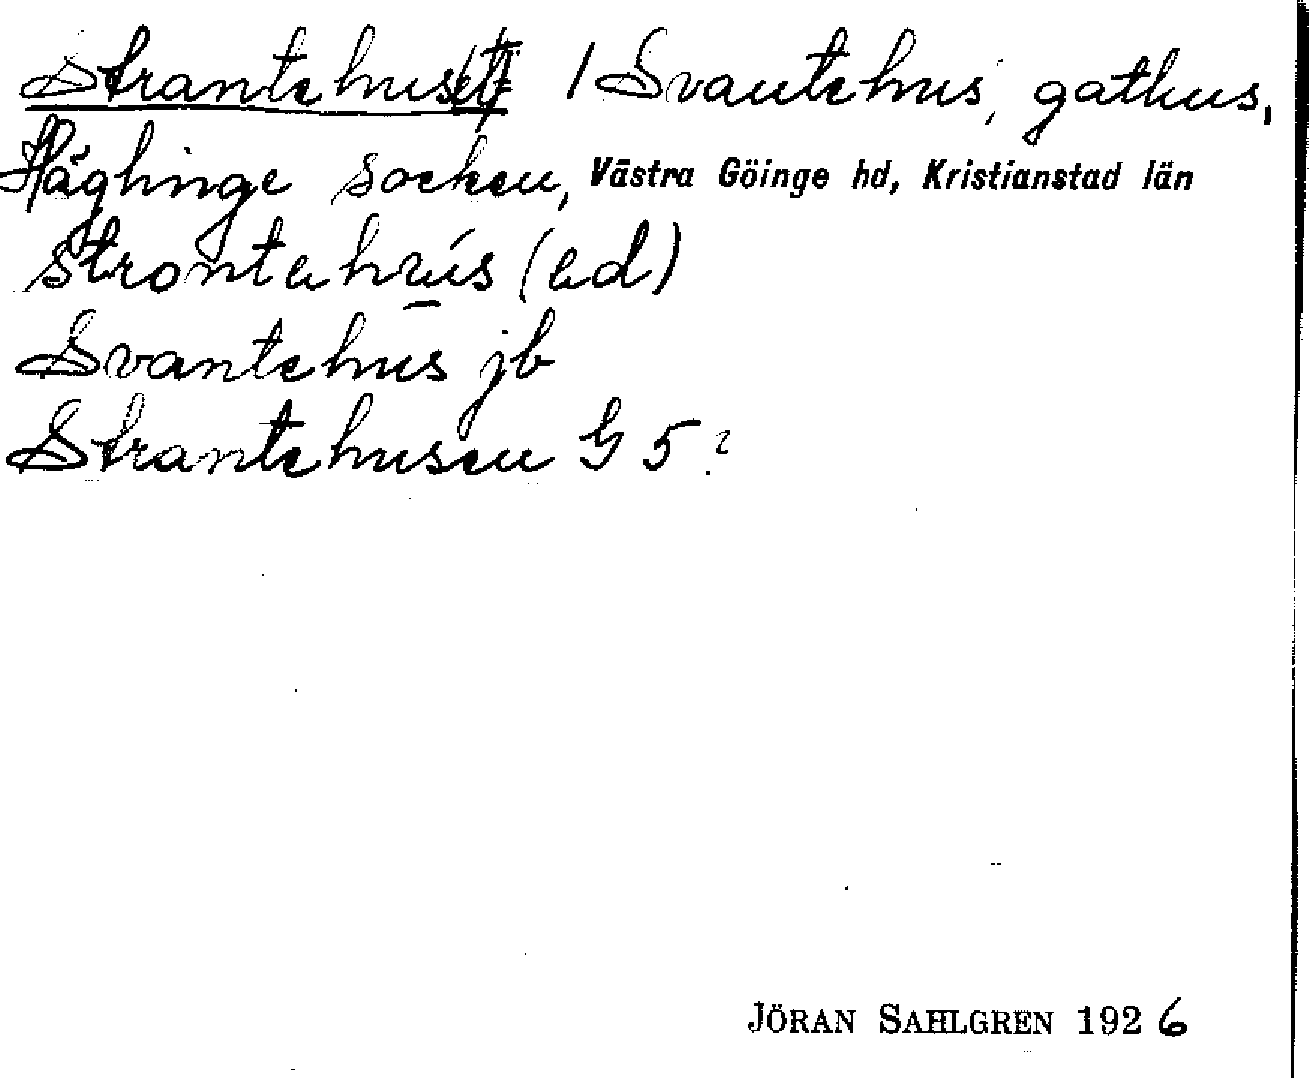 Strantehus(et) / Svantehus, gathus,
Häglinge socken, Västra Göinge hd, Kristianstad län
Strontahus (ed)
Svantehus jb
Strantehusen G 5?
JÖRAN SAHLGREN 1926